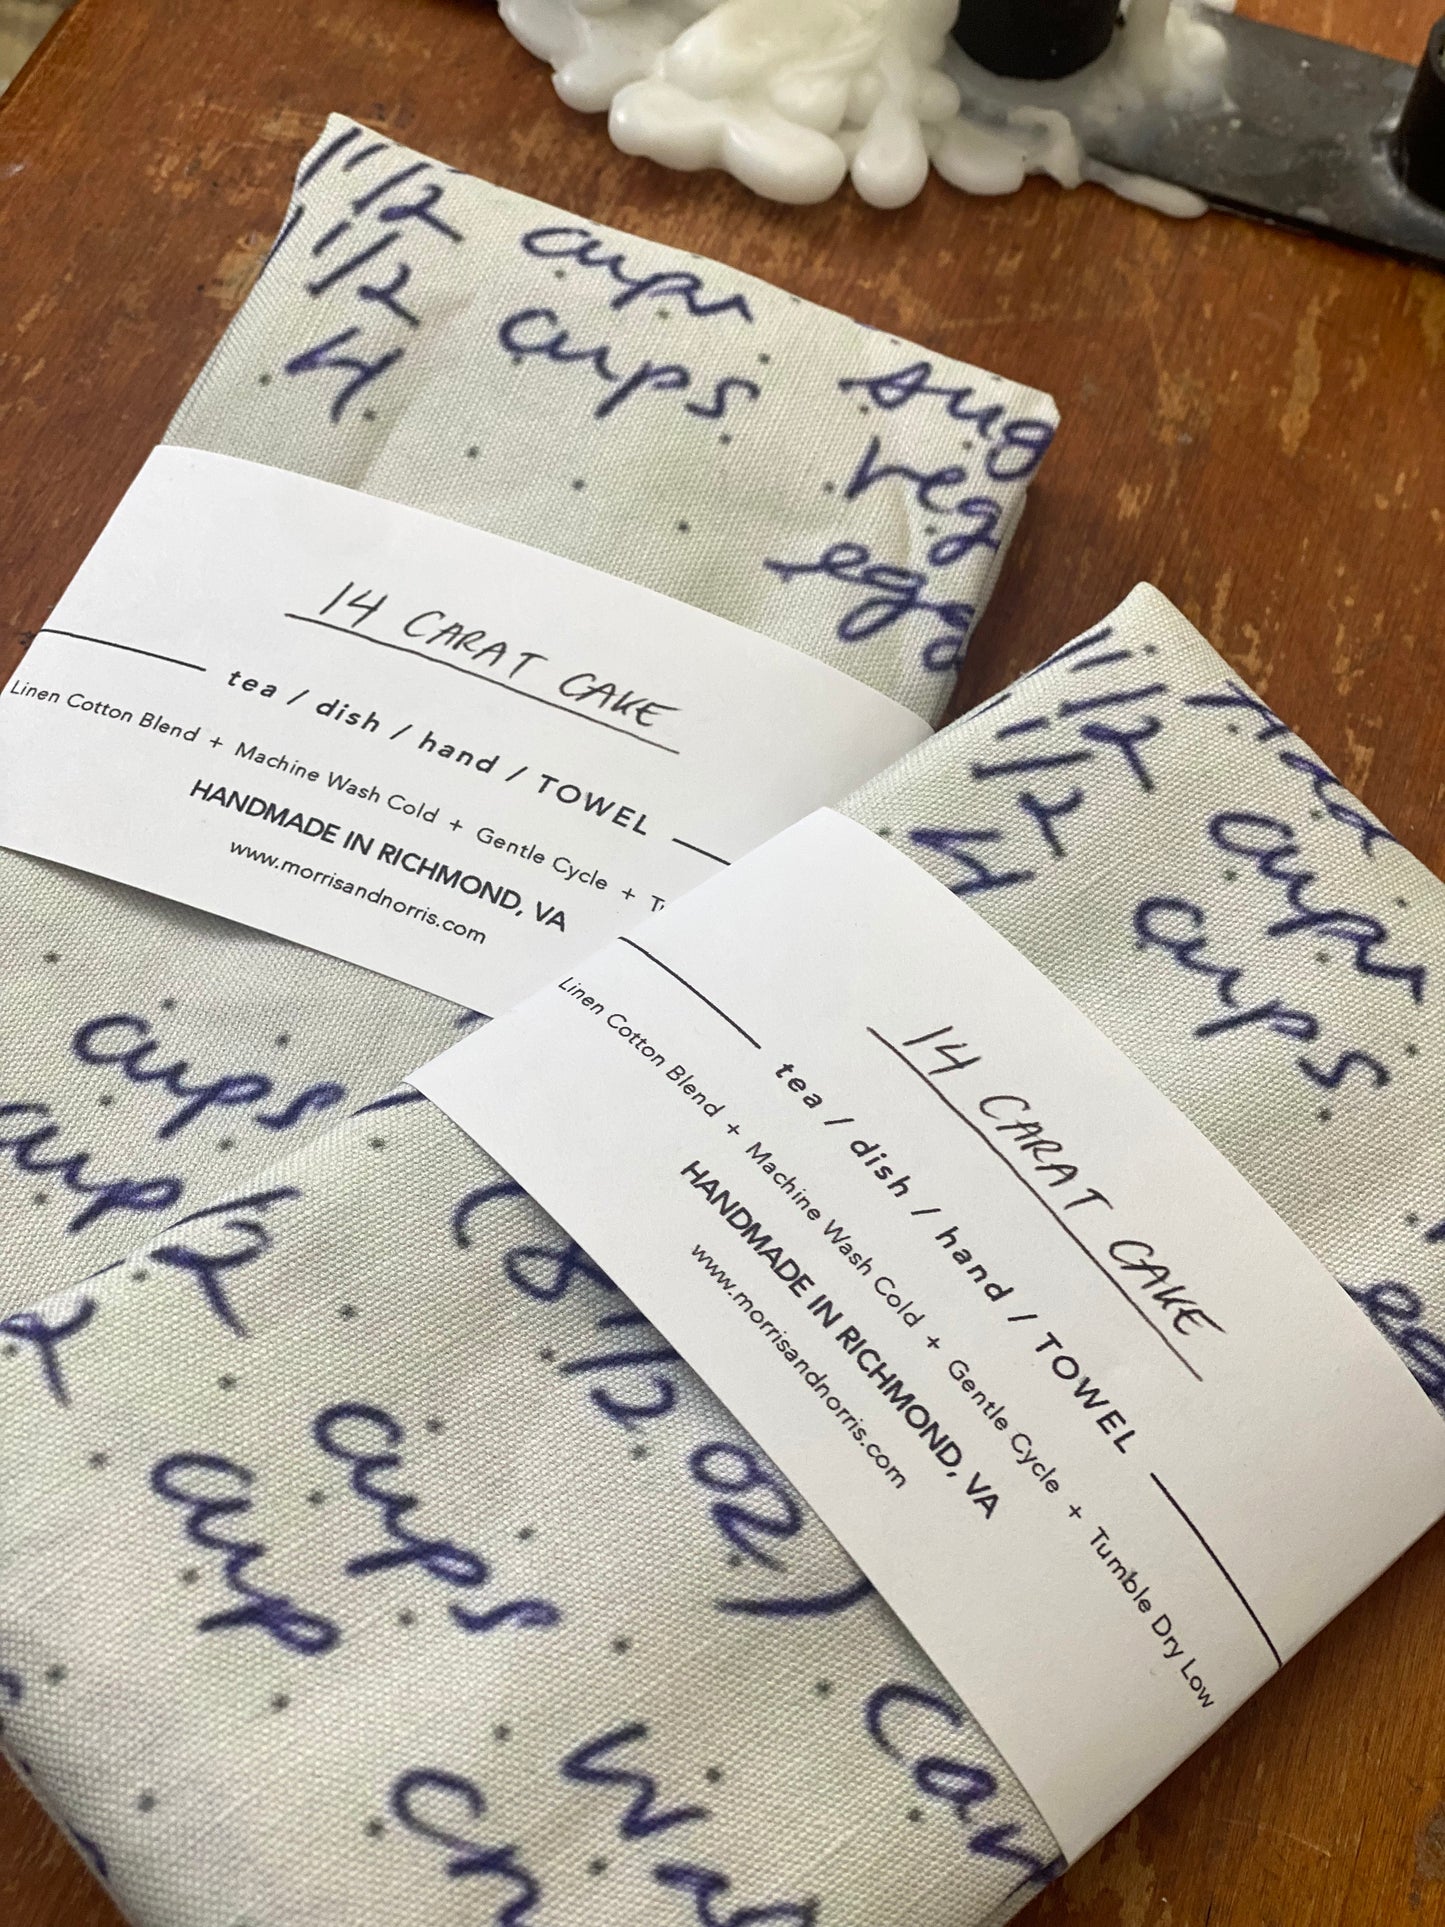 1 1/2 cups sug
1 1/2 cups veg
4 eggs
14 CARAT CAKE
tea / dish / hand / TOWEL
Linen Cotton Blend + Machine Wash Cold + Gentle Cycle + T
HANDMADE IN RICHMOND, VA
www.morrisandnorris.com
cups
cup
1 1/2 cups
1 1/2 cups
4
14 CARAT CAKE
tea / dish / hand / TOWEL
Linen Cotton Blend + Machine Wash Cold + Gentle Cycle + Tumble Dry Low
HANDMADE IN RICHMOND, VA
www.morrisandnorris.com
1/2 cups (8 1/2 oz)
2 cup